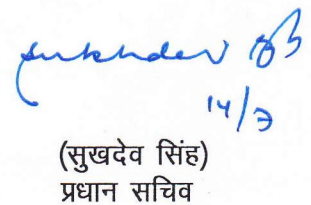 sukhdev
14/7
(सुखदेव सिंह)
प्रधान सचिव